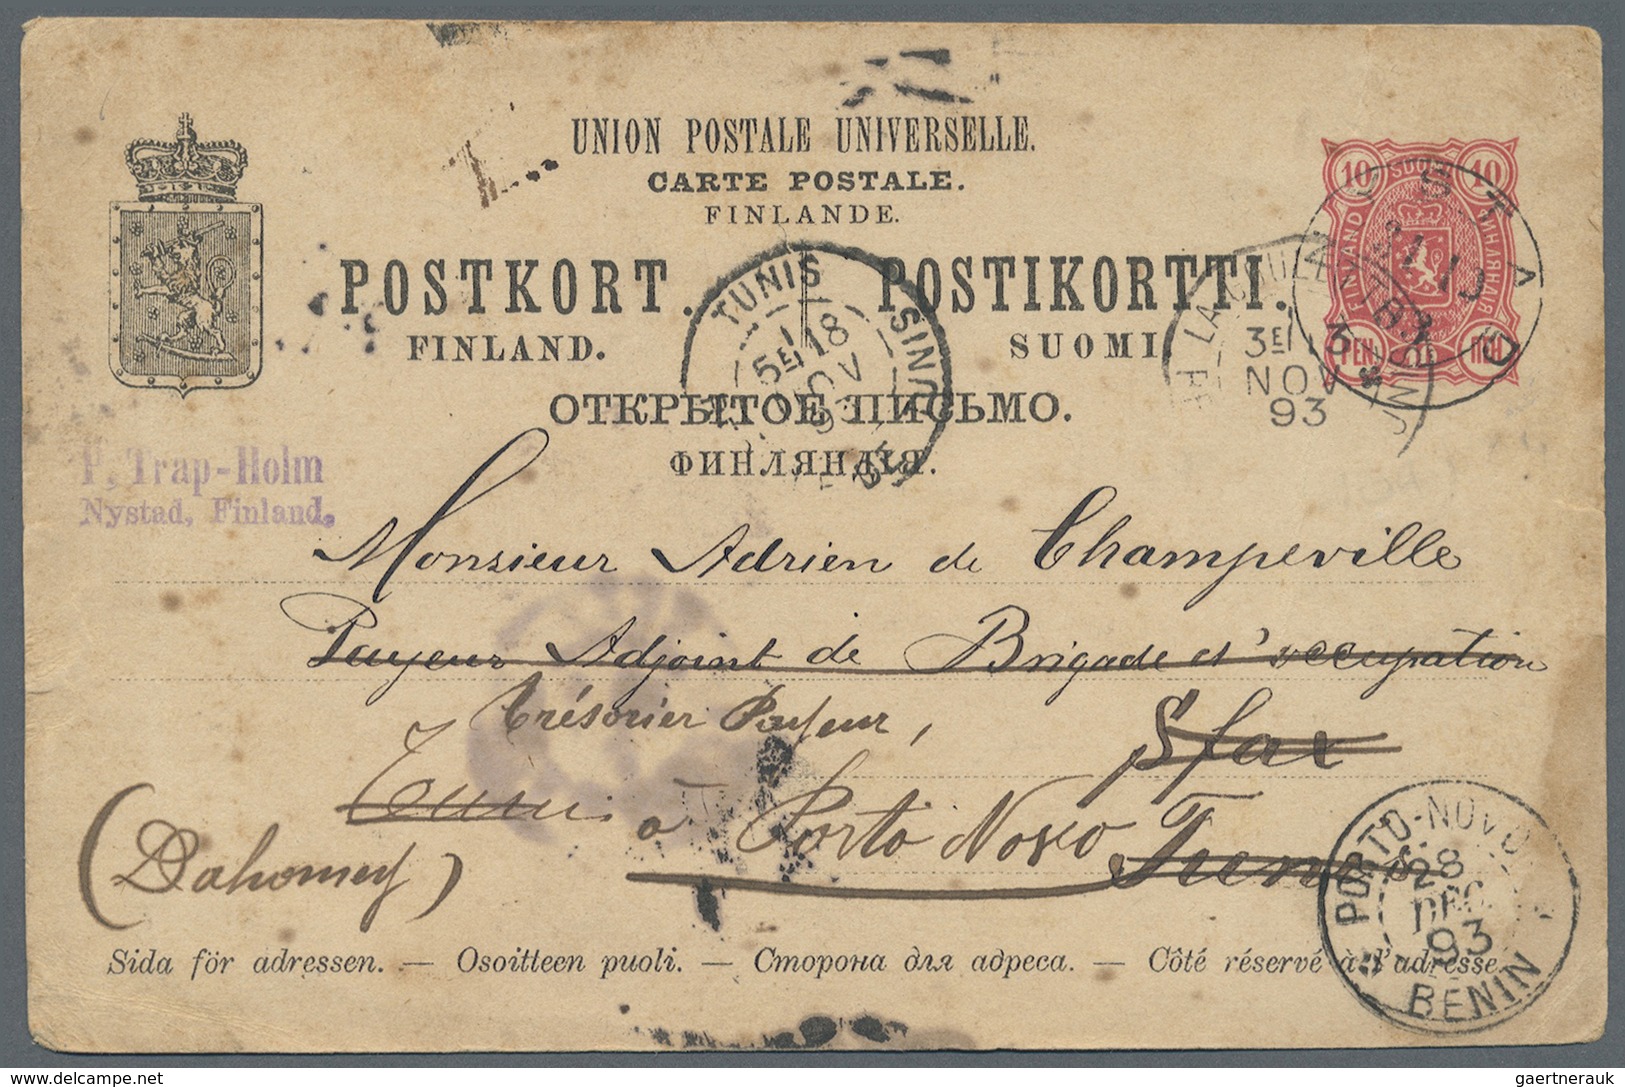 UNION POSTALE UNIVERSELLE.
CARTE POSTALE.
FINLANDE.
POSTKORT. POSTIKORTTI.
FINLAND. SUOMI
ОТКРЫТОЕ ПИСЬМО.
ФИНЛЯНДІЯ.
10 10
PEN. ПЕН.
TUNIS TUNIS
1 5E 18
NOV
3E
NOV
93
P. Trap-Holm
Nystad, Finland.
Monsieur Adrien de Champeville
Payeur Adjoint de Brigade d'occupation
Trésorier Payeur,
Sfax
Tunis
à Porto Novo
(Dahomey)
PORTO-NOVO
28
DEC
93
BENIN
Sida för adressen. — Osoitteen puoli. — Сторона для адреса. — Côté réservé à l'adresse.
gaertnerauk